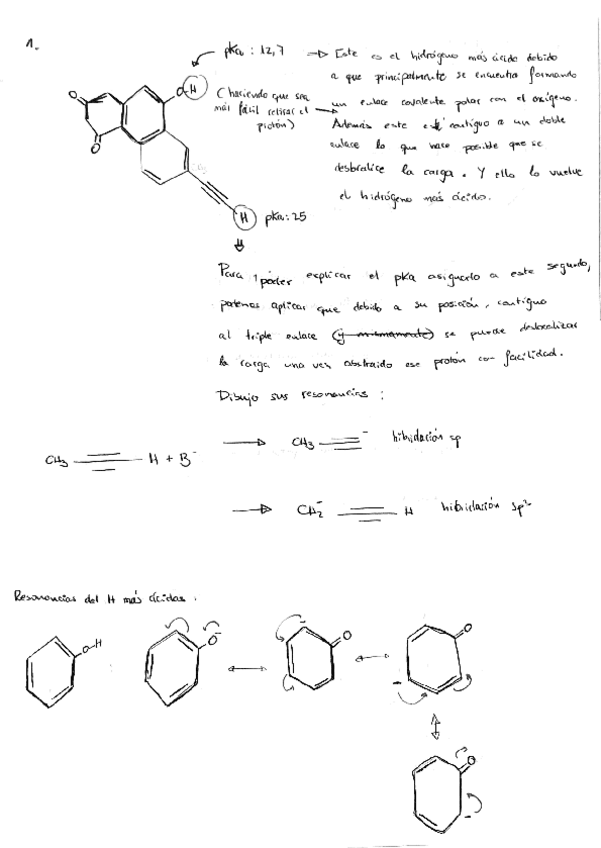 1.
pKa : 12,7 → Este es el hidrógeno más ácido debido
a que principalmente se encuentra formando
(haciendo que sea
más fácil retirar el
protón)
un enlace covalente polar con el oxígeno.
Además este está contiguo a un doble
enlace lo que hace posible que se
desloralice la carga. Y ello lo vuelve
el hidrógeno más ácido.
O
O
O-H
H pKa: 25
Para poder explicar el pKa asignado a este segundo,
podemos aplicar que debido a su posición, contiguo
al triple enlace se puede deslocalizar
la carga una vez abstraido ese protón con facilidad.
Dibujo sus resonancias :
CH3 H + B-
→ CH3 - hibridación sp
→ CH2- H hibridación sp2
Resonancias del H más ácidas.
O-H
O-
O
O
O